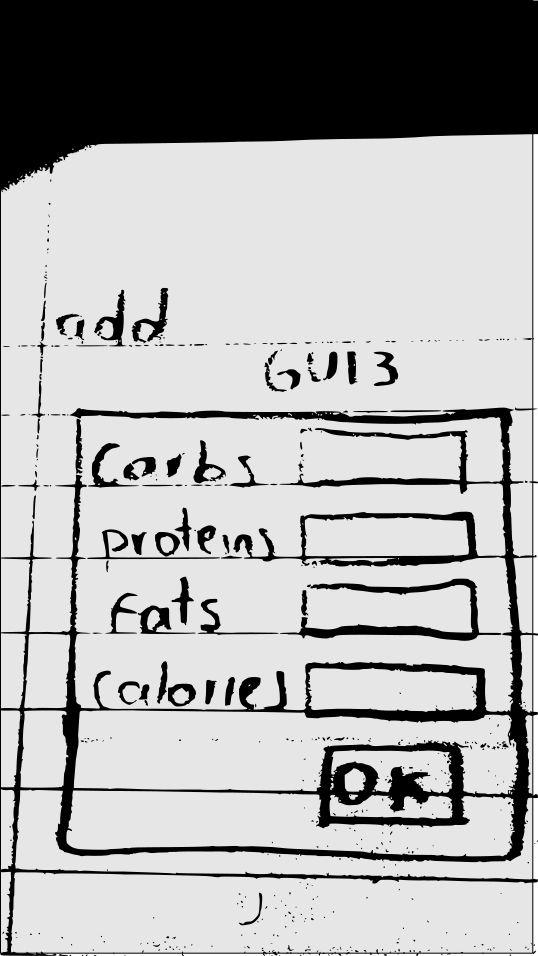 add
GUI3
Carbs
proteins
Fats
Calories
OK